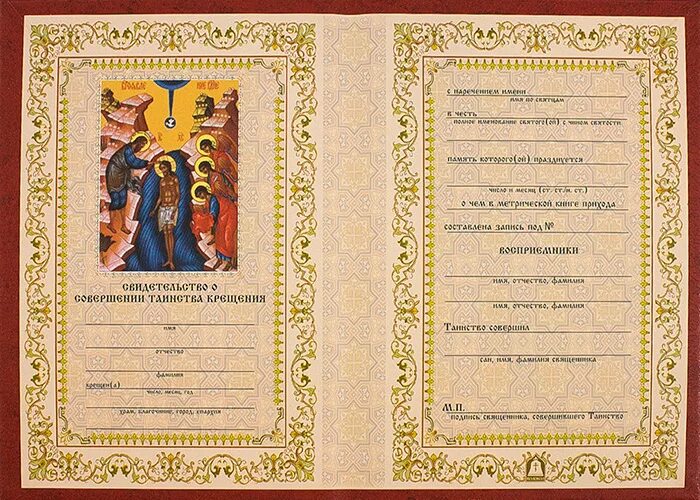 СВИДЕТЕЛЬСТВО О
СОВЕРШЕНИИ ТАИНСТВА КРЕЩЕНИЯ
имя
отчество
фамилия
крещен(а)
число, месяц, год
храм, благочиние, город, епархия
с наречением имени
имя по святцам
в честь
полное именование святого(ой) с чином святости
память которого(ой) празднуется
число и месяц (ст. ст./н. ст.)
о чем в метрической книге прихода
составлена запись под №
ВОСПРИЕМНИКИ
имя, отчество, фамилия
имя, отчество, фамилия
Таинство совершил
сан, имя, фамилия священника
М.П.
подпись священника, совершившего Таинство